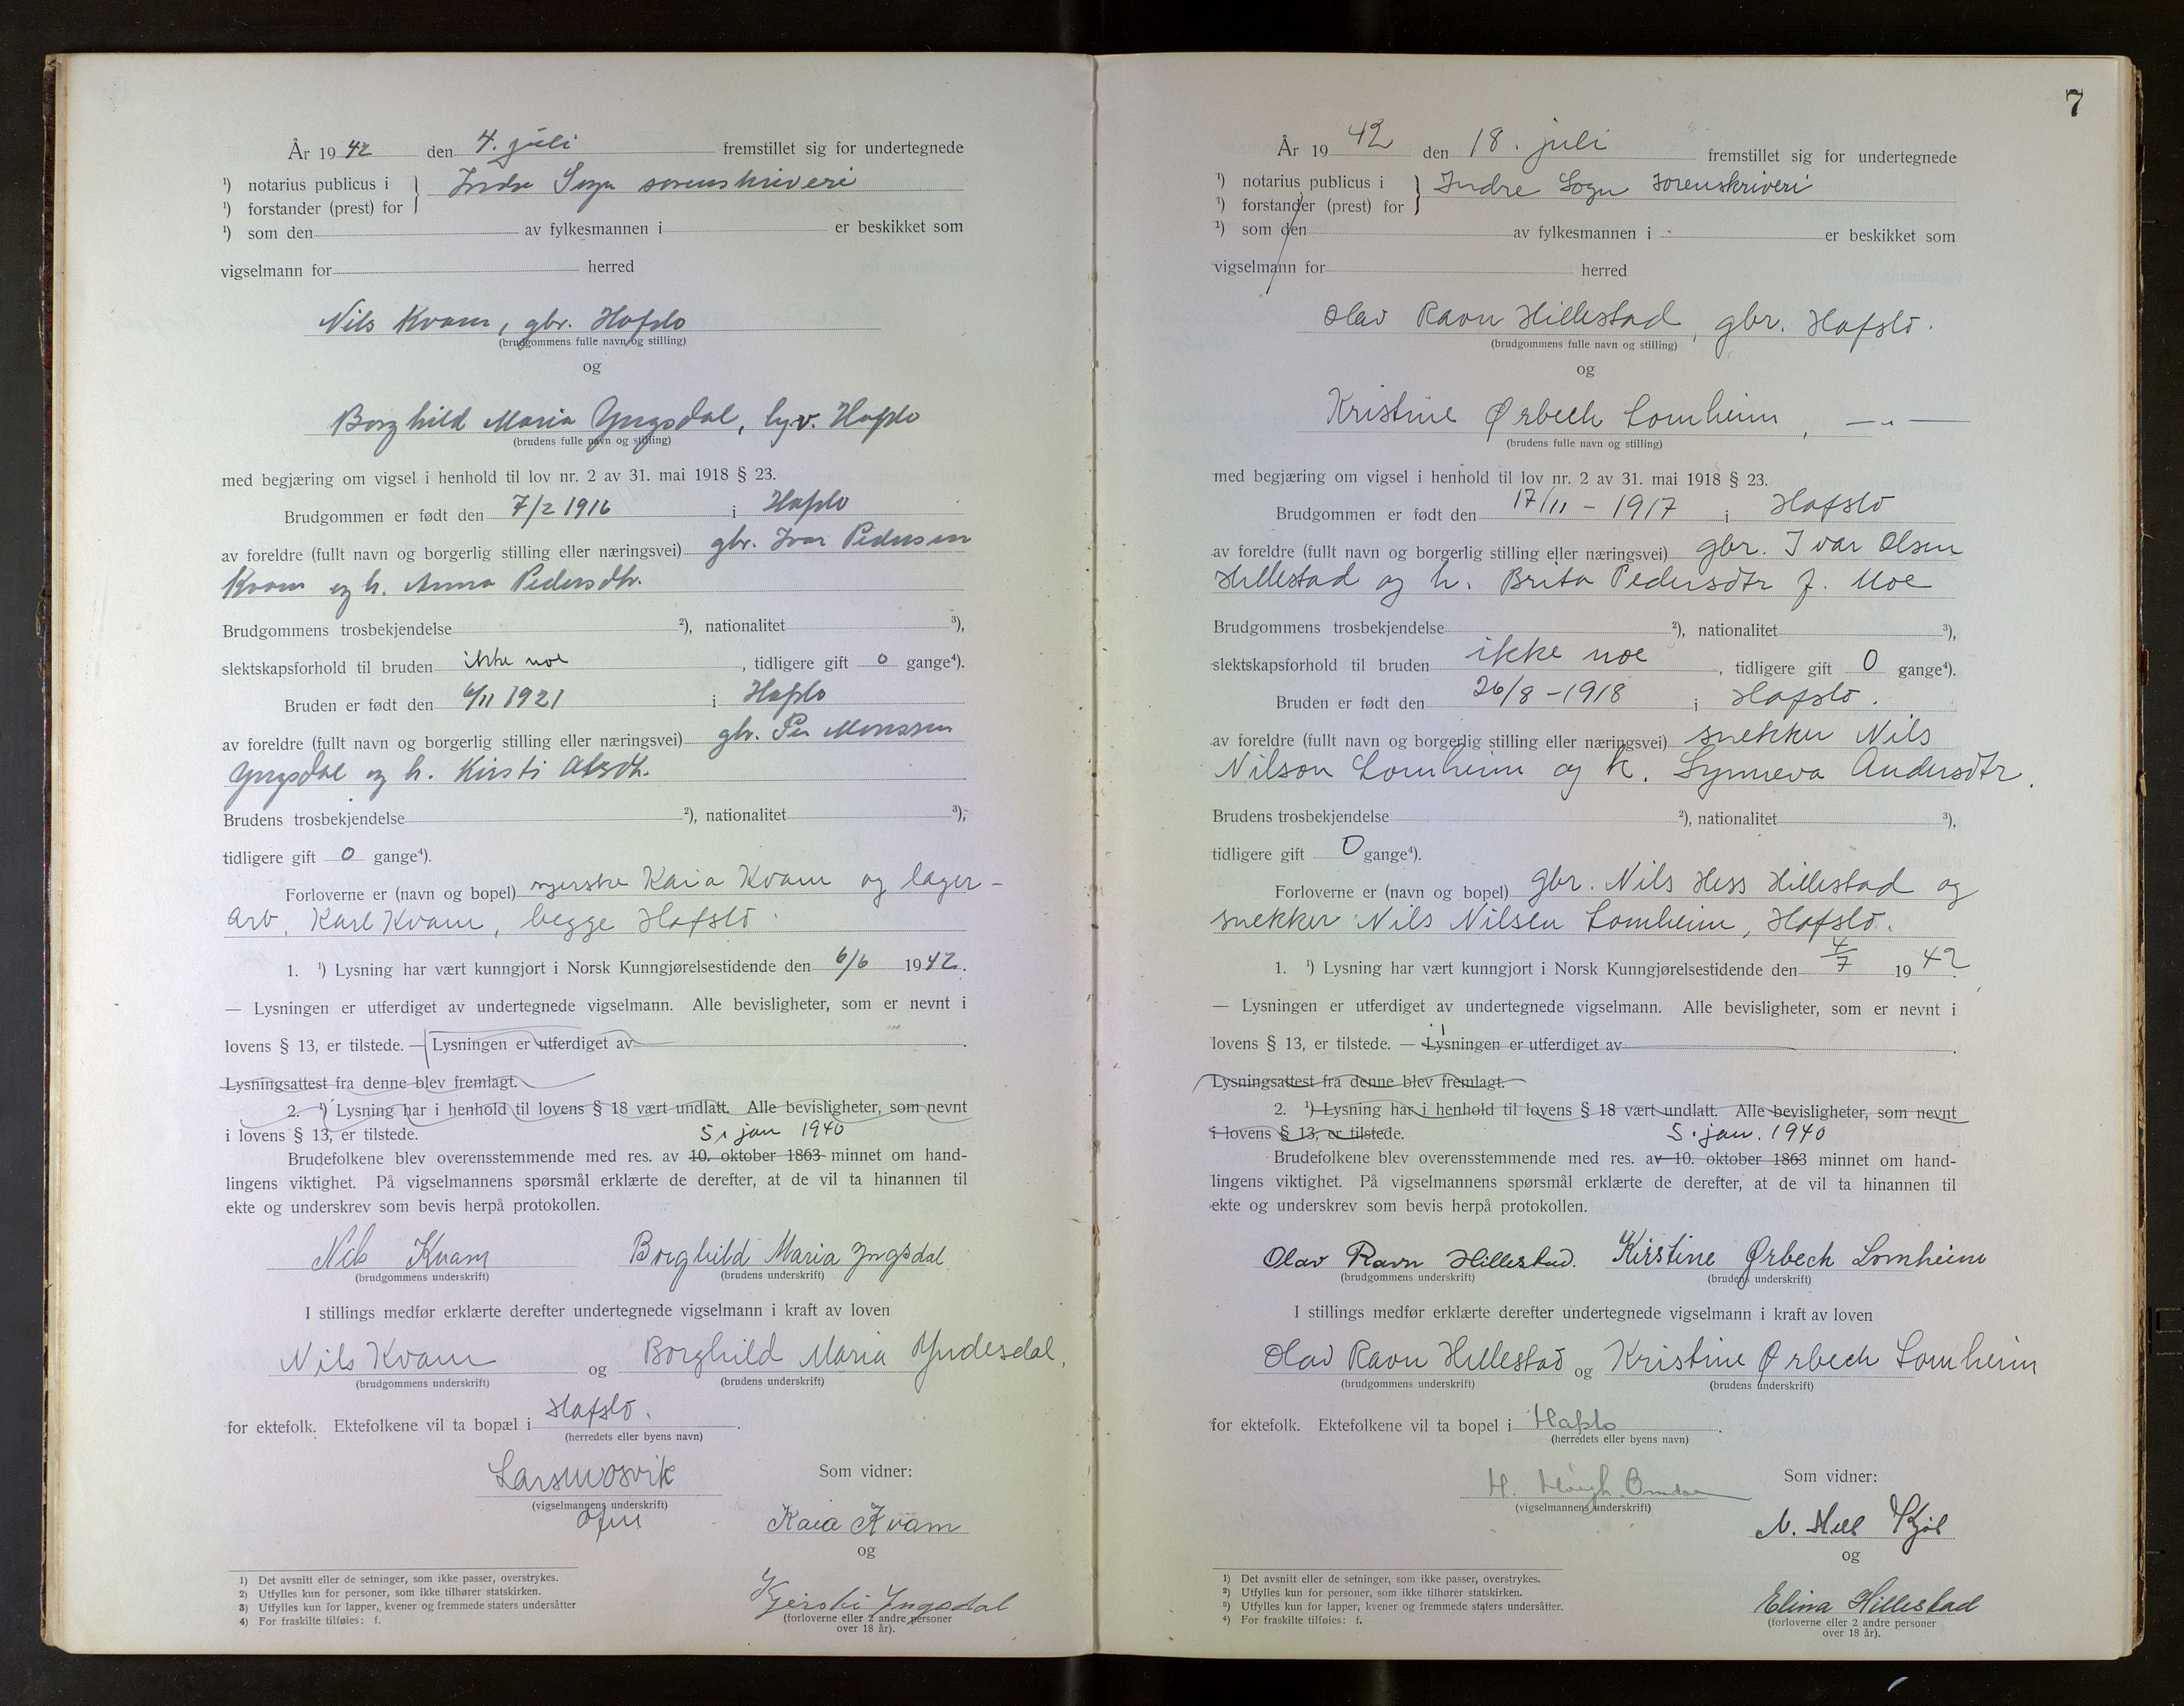 År 1942 den 4. juli fremstillet sig for undertegnede
¹) notarius publicus i } Indre Sogn sorenskriveri
¹) forstander (prest) for
¹) som den av fylkesmannen i er beskikket som
vigselmann for herred
Nils Kvam, gbr. Hafslo
(brudgommens fulle navn og stilling)
og
Borghild Maria Yngsdal, Hafslo
(brudens fulle navn og stilling)
med begjæring om vigsel i henhold til lov nr. 2 av 31. mai 1918 § 23.
Brudgommen er født den 7/2 1916 i Hafslo
av foreldre (fullt navn og borgerlig stilling eller næringsvei) gbr. Ivar Pedersen
Kvam og h. Anna Pedersdtr.
Brudgommens trosbekjendelse ²), nationalitet ³),
slektskapsforhold til bruden ikke noe, tidligere gift 0 gange⁴).
Bruden er født den 6/11 1921 i Hafslo
av foreldre (fullt navn og borgerlig stilling eller næringsvei) gbr. Per Monssen
Yngsdal og h. Kirsti
Brudens trosbekjendelse ²), nationalitet ³),
tidligere gift 0 gange⁴).
Forloverne er (navn og bopel) syerske Kaia Kvam og lager-
arb. Karl Kvam, begge Hafslo.
1. ¹) Lysning har vært kunngjort i Norsk Kunngjørelsestidende den 6/6 1942.
— Lysningen er utferdiget av undertegnede vigselmann. Alle bevisligheter, som er nevnt i
lovens § 13, er tilstede. — Lysningen er utferdiget av
Lysningsattest fra denne blev fremlagt.
2. ¹) Lysning har i henhold til lovens § 18 vært undlatt. Alle bevisligheter, som nevnt
i lovens § 13, er tilstede. 5. jan 1940
Brudefolkene blev overensstemmende med res. av 10. oktober 1863 minnet om hand-
lingens viktighet. På vigselmannens spørsmål erklærte de derefter, at de vil ta hinannen til
ekte og underskrev som bevis herpå protokollen.
Nils Kvam Borghild Maria Yngsdal
(brudgommens underskrift) (brudens underskrift)
I stillings medfør erklærte derefter undertegnede vigselmann i kraft av loven
Nils Kvam og Borghild Maria Yndesdal,
(brudgommens underskrift) (brudens underskrift)
for ektefolk. Ektefolkene vil ta bopæl i Hafslo.
(herredets eller byens navn)
Lars Mosvik Som vidner:
(vigselmannens underskrift)
Kaia Kvam
og
Yngsdal
(forloverne eller 2 andre personer
over 18 år).
1) Det avsnitt eller de setninger, som ikke passer, overstrykes.
2) Utfylles kun for personer, som ikke tilhører statskirken.
3) Utfylles kun for lapper, kvener og fremmede staters undersåtter
4) For fraskilte tilføies: f.
7
År 1942 den 18. juli fremstillet sig for undertegnede
¹) notarius publicus i } Indre Sogn sorenskriveri
¹) forstander (prest) for
¹) som den av fylkesmannen i er beskikket som
vigselmann for herred
Olav Ravn Hillestad, gbr. Hafslo.
(brudgommens fulle navn og stilling)
og
Kristine Ørbech Lomheim, —"—
(brudens fulle navn og stilling)
med begjæring om vigsel i henhold til lov nr. 2 av 31. mai 1918 § 23.
Brudgommen er født den 17/11 - 1917 i Hafslo
av foreldre (fullt navn og borgerlig stilling eller næringsvei) gbr. Ivar Olsen
Hillestad og h. Brita Pedersdtr f. Moe
Brudgommens trosbekjendelse ²), nationalitet ³),
slektskapsforhold til bruden ikke noe, tidligere gift 0 gange⁴).
Bruden er født den 26/8 - 1918 i Hafslo.
av foreldre (fullt navn og borgerlig stilling eller næringsvei) snekker Nils
Nilson Lomheim og h. Synneva Andersdtr.
Brudens trosbekjendelse ²), nationalitet ³),
tidligere gift 0 gange⁴).
Forloverne er (navn og bopel) gbr. Nils Hess Hillestad og
snekker Nils Nilsen Lomheim, Hafslo.
1. ¹) Lysning har vært kunngjort i Norsk Kunngjørelsestidende den 4/7 1942.
— Lysningen er utferdiget av undertegnede vigselmann. Alle bevisligheter, som er nevnt i
lovens § 13, er tilstede. — Lysningen er utferdiget av
Lysningsattest fra denne blev fremlagt.
2. ¹) Lysning har i henhold til lovens § 18 vært undlatt. Alle bevisligheter, som nevnt
i lovens § 13, er tilstede. 5. jan. 1940
Brudefolkene blev overensstemmende med res. av 10. oktober 1863 minnet om hand-
lingens viktighet. På vigselmannens spørsmål erklærte de derefter, at de vil ta hinannen til
ekte og underskrev som bevis herpå protokollen.
Olav Ravn Hillestad. Kirstine Ørbeck Lomheim
(brudgommens underskrift) (brudens underskrift)
I stillings medfør erklærte derefter undertegnede vigselmann i kraft av loven
Olav Ravn Hillestad og Kristine Ørbech Lomheim
(brudgommens underskrift) (brudens underskrift)
for ektefolk. Ektefolkene vil ta bopel i Hafslo.
(herredets eller byens navn)
H. Som vidner:
(vigselmannens underskrift)
N.
og
Elina Hillestad
(forloverne eller 2 andre personer
over 18 år).
1) Det avsnitt eller de setninger, som ikke passer, overstrykes.
2) Utfylles kun for personer, som ikke tilhører statskirken.
3) Utfylles kun for lapper, kvener og fremmede staters undersåtter.
4) For fraskilte tilføies: f.